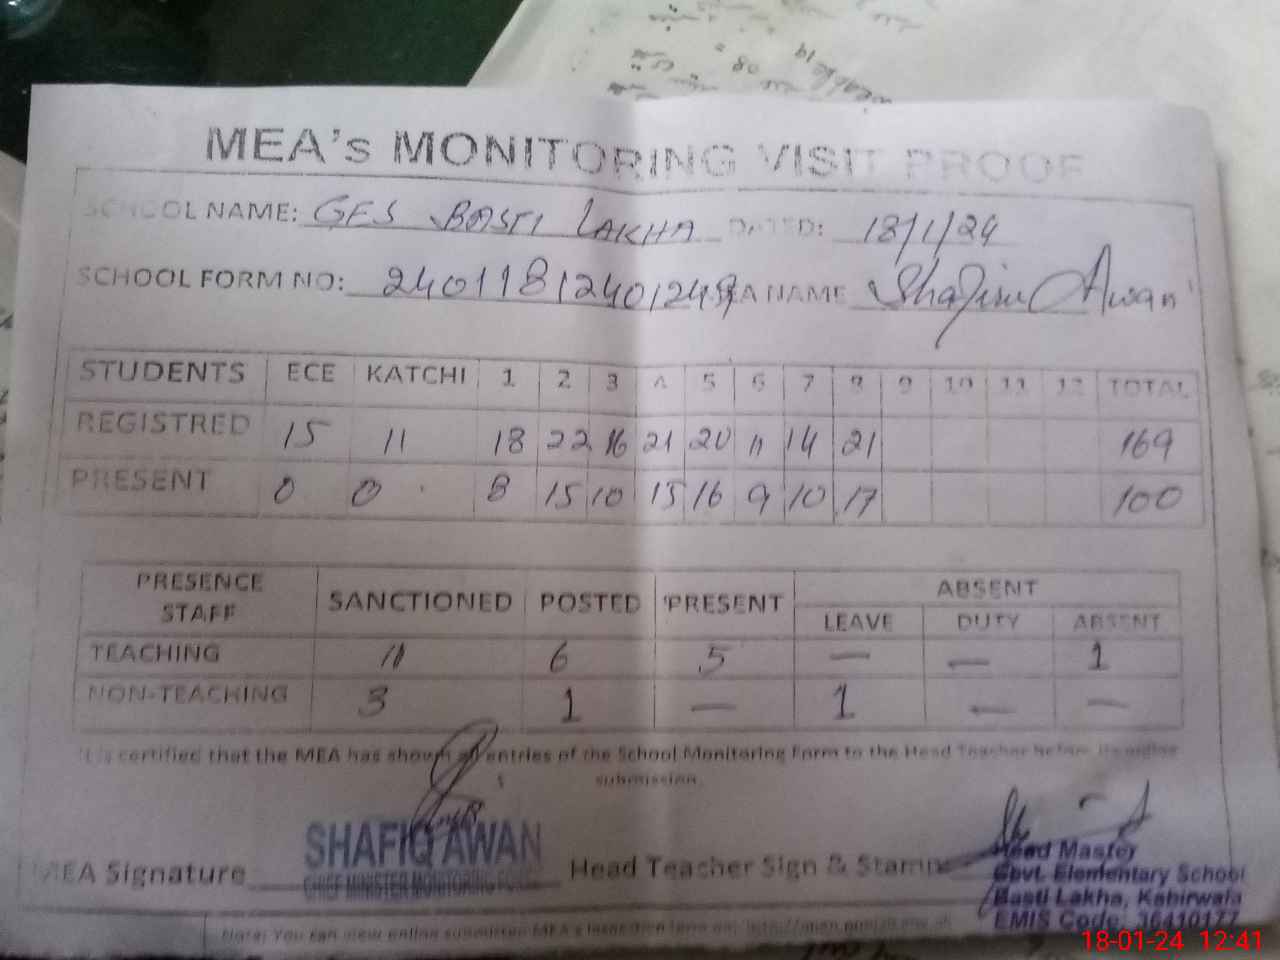 MEA's MONITORING VISIT PROOF
SCHOOL NAME: GES BASTI LAKHA DATED: 18/1/24
SCHOOL FORM NO: 2401181240124 EA NAME Shafique Awan
STUDENTS ECE KATCHI 1 2 3 4 5 6 7 8 9 10 11 12 TOTAL
REGISTRED 15 11 18 22 16 21 20 11 14 21 169
PRESENT 0 0 8 15 10 15 16 9 10 17 100
PRESENCE STAFF SANCTIONED POSTED PRESENT ABSENT
LEAVE DUTY ABSENT
TEACHING 11 6 5 — — 1
NON-TEACHING 3 1 — 1 — —
It is certified that the MEA has shown all entries of the School Monitoring Form to the Head Teacher before its online
submission.
SHAFIQ AWAN
MEA Signature CHIEF MINISTER MONITORING FORCE Head Teacher Sign & Stamp
Head Master
Govt. Elementary School
Basti Lakha, Kabirwala
EMIS Code: 36410177
Note: You can view online submitted MEA's inspection form on:
18-01-24 12:41